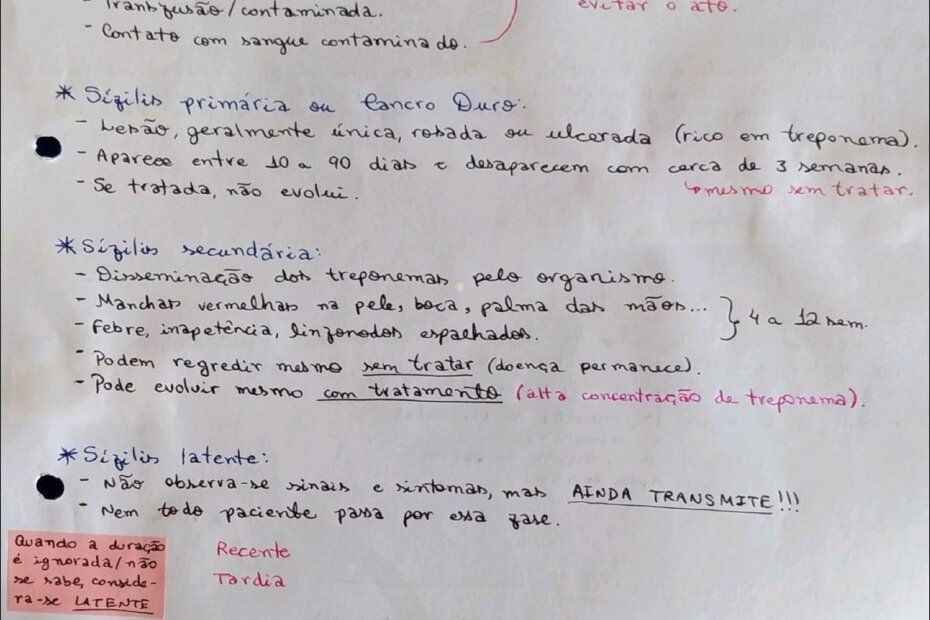 Transfusão/contaminada.
evitar o ato.
- Contato com sangue contaminado.
* Sífilis primária ou Cancro Duro:
- Lesão, geralmente única, rosada ou ulcerada (rico em treponema).
- Aparece entre 10 a 90 dias e desaparecem com cerca de 3 semanas.
- Se tratada, não evolui.
↳ mesmo sem tratar.
* Sífilis secundária:
- Disseminação dos treponemas pelo organismo.
- Manchas vermelhas na pele, boca, palma das mãos...
- Febre, inapetência, linfonodos espalhados.
} 4 a 12 sem.
- Podem regredir mesmo sem tratar (doença permanece).
- Pode evoluir mesmo com tratamento (alta concentração de treponema).
* Sífilis latente:
- Não observa-se sinais e sintomas, mas AINDA TRANSMITE!!!
- Nem todo paciente passa por essa fase.
Quando a duração
é ignorada/não
se sabe, conside-
ra-se LATENTE
Recente
Tardia